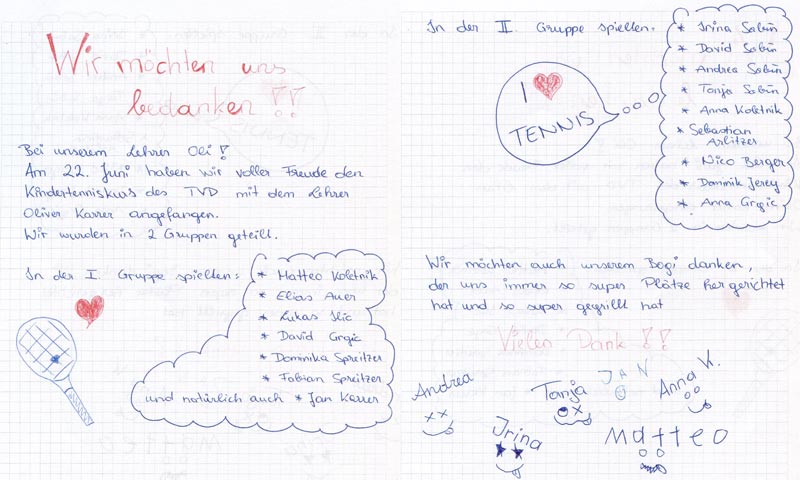 Wir möchten uns
bedanken !!
Bei unserem Lehrer Oli !
Am 22. Juni haben wir voller Freude den
Kindertenniskurs des TVD mit dem Lehrer
Oliver Karrer angefangen.
Wir wurden in 2 Gruppen geteilt.
In der I. Gruppe spielten:
* Matteo Koletnik
* Elias Auer
* Lukas Ilic
* David Grgic
* Dominika Spreitzer
* Fabian Spreitzer
und natürlich auch * Jan Karrer
In der II. Gruppe spielten:
* Irina Sabin
* David Sabin
* Andrea Sabin
* Tanja Sabin
* Anna Koletnik
* Sebastian
Arlitzer
* Nico Berger
* Dominik Jerey
* Anna Grgic
I
TENNIS
Wir möchten auch unserem Bogi danken,
der uns immer so super Plätze hergerichtet
hat und so super gegrillt hat
Vielen Dank !!
Andrea
Irina
Tanja
JAN
Anna K.
Matteo